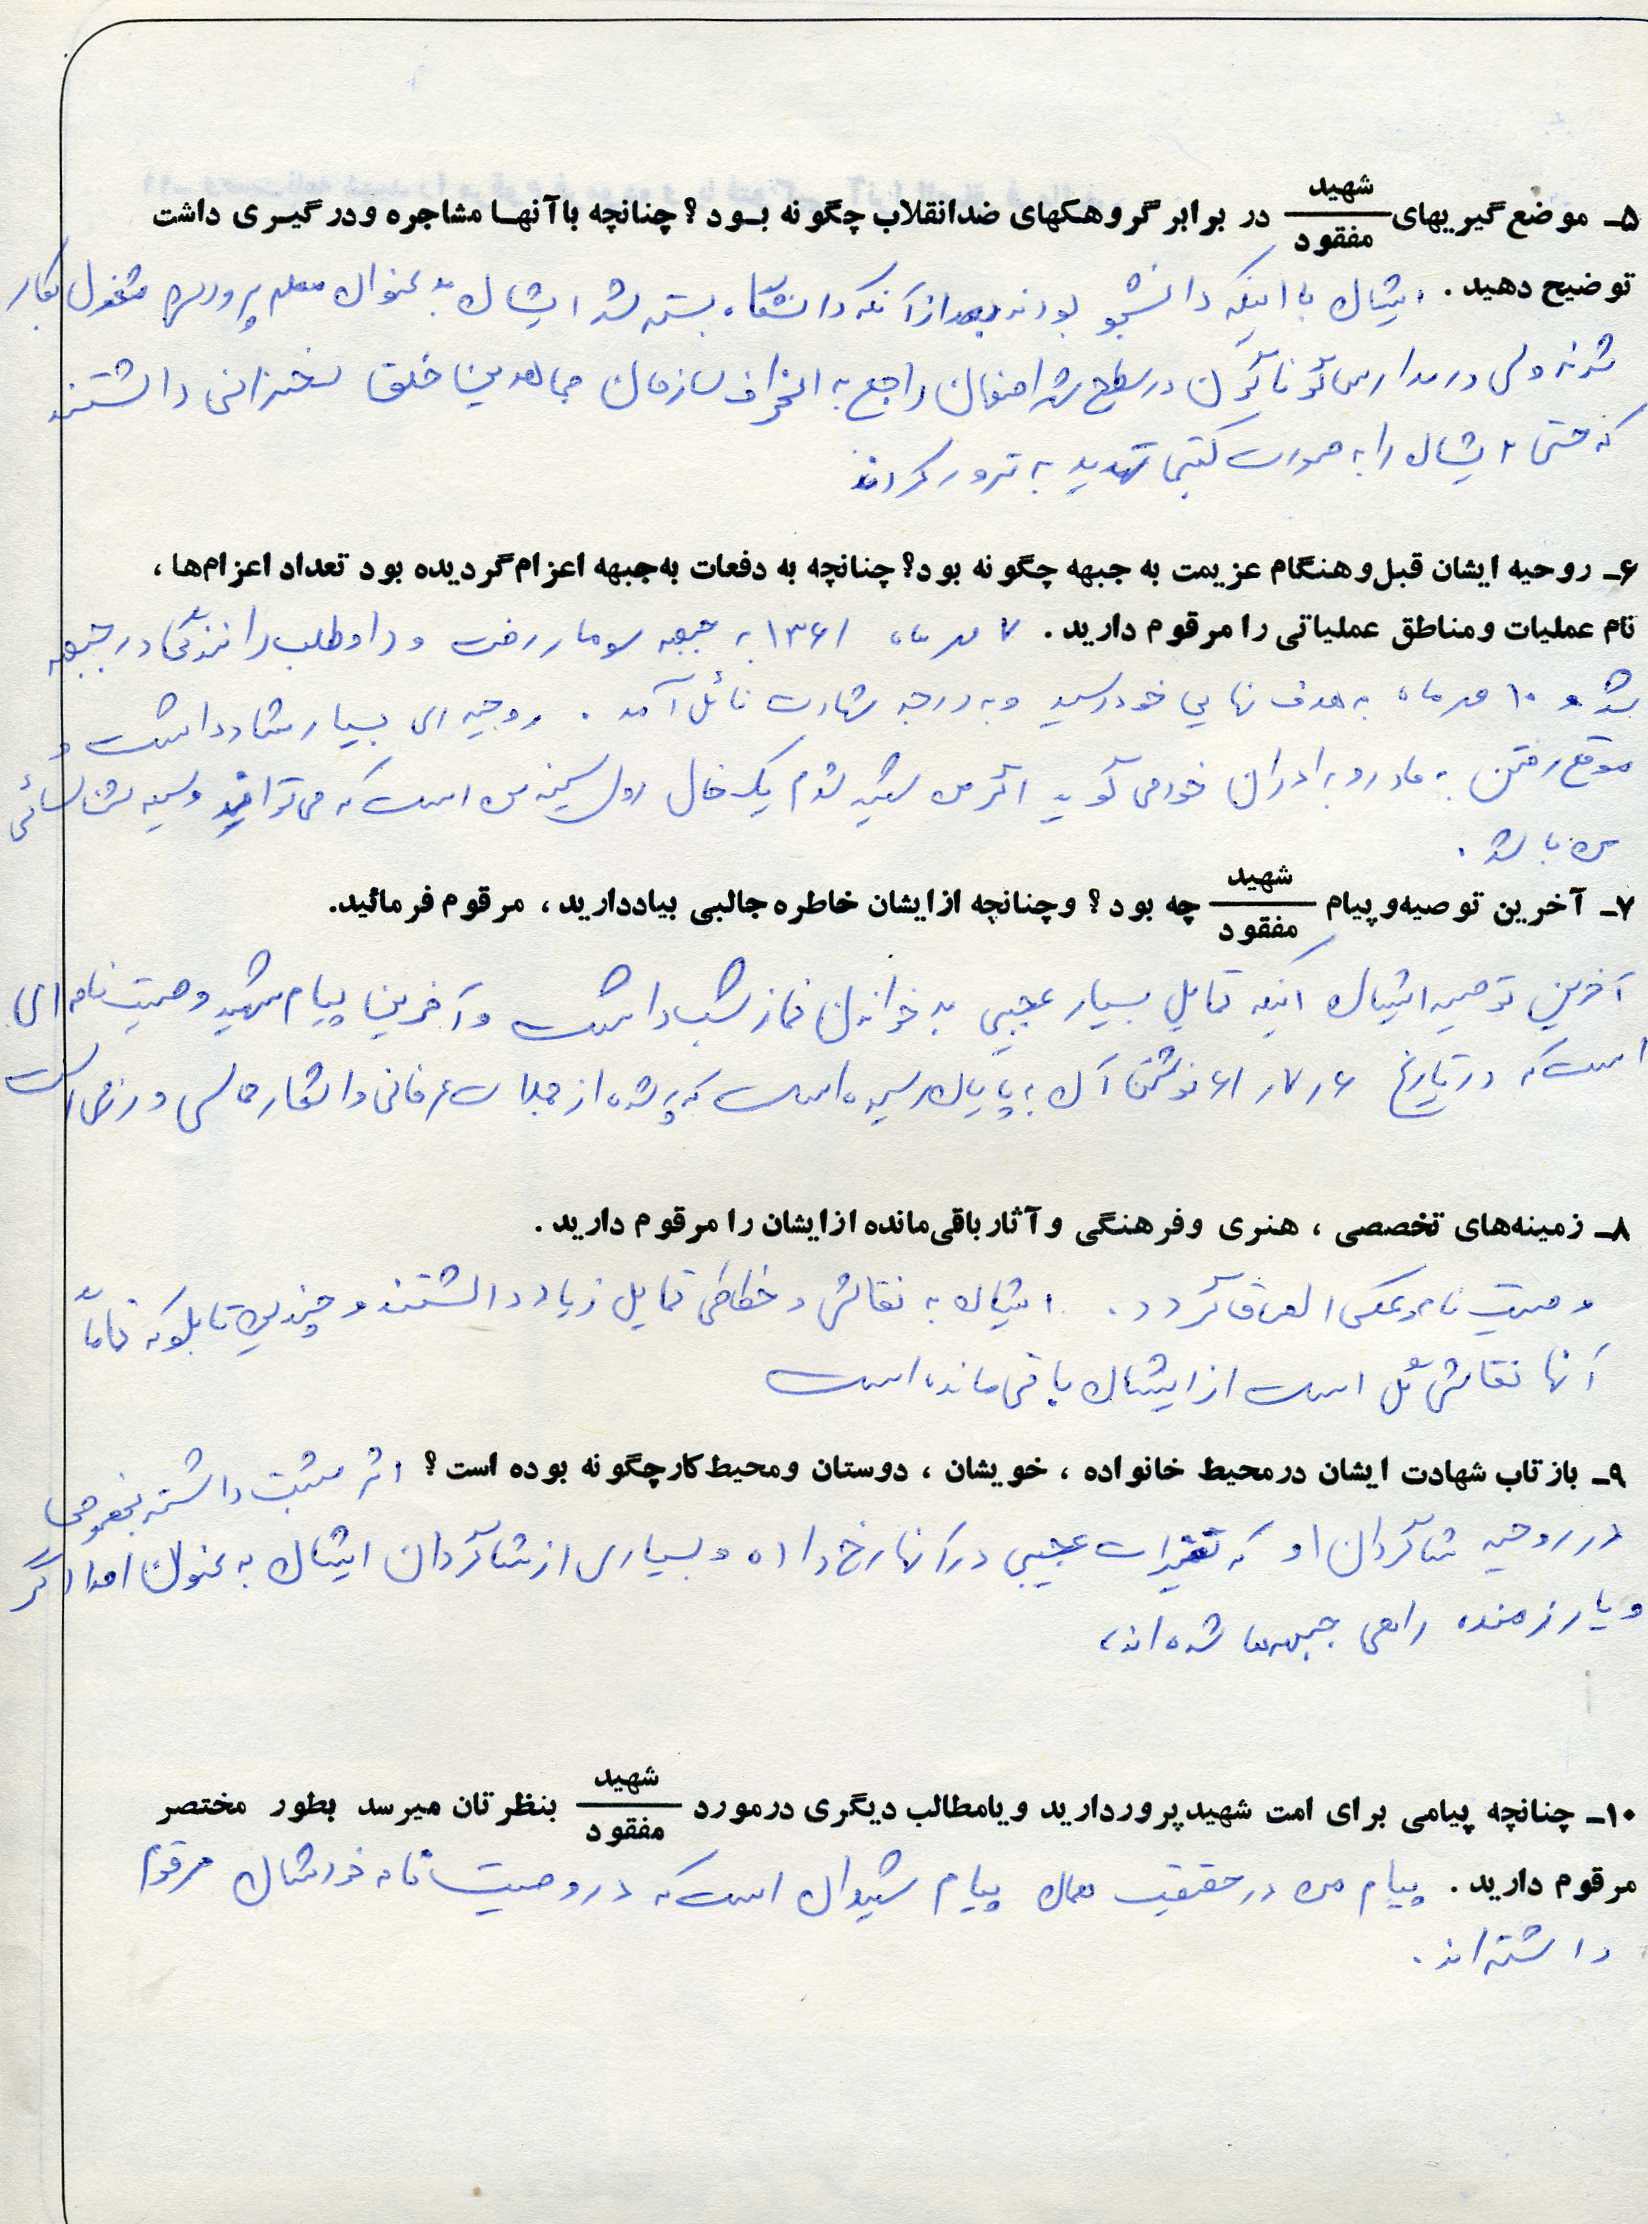 ۵ـ موضع گیریهای شهید / مفقود در برابر گروهکهای ضدانقلاب چگونه بود ؟ چنانچه با آنها مشاجره ودرگیری داشت
توضیح دهید . ایشان با اینکه دانشجو بودند بعد از آنکه دانشگاه بسته شد ایشان به عنوان معلم پرورشی مشغول بکار
شدند ولی در مدارس گوناگون در سطح شهر اصفهان راجع به انحراف سازمان مجاهدین خلق سخنرانی داشتند
که حتی ایشان را به صورت کتبی تهدید به ترور کردند
۶ـ روحیه ایشان قبل وهنگام عزیمت به جبهه چگونه بود؟ چنانچه به دفعات به جبهه اعزام گردیده بود تعداد اعزام‌ها ،
نام عملیات ومناطق عملیاتی را مرقوم دارید . ۷ مهر ماه ۱۳۶۱ به جبهه سومار رفت و داوطلب رانندگی در جبهه
شد و ۱۰ مهر ماه به هدف نهایی خود رسید و به درجه شهادت نائل آمد . روحیه ای بسیار شاد داشت و
موقع رفتن به مادر و برادران خود می گوید اگر من شهید شدم یک خال روی سینه من است که می تواند وسیله شناسائی
من باشد .
۷ـ آخرین توصیه وپیام شهید / مفقود چه بود ؟ وچنانچه ازایشان خاطره جالبی بیاددارید ، مرقوم فرمائید.
آخرین توصیه ایشان اینکه تمایل بسیار عجیبی به خواندن نماز شب داشت و آخرین پیام شهید وصیت نامه ای
است که در تاریخ ۶ر۷ر۶۱ نوشتن آن به پایان رسیده است که پر شده از جملات عرفانی و اشعار حماسی و رزمی است
۸ـ زمینه‌های تخصصی ، هنری وفرهنگی وآثار باقی‌مانده ازایشان را مرقوم دارید .
وصیت نامه و عکس الصاق گردد . ایشان به نقاشی و خطاطی تمایل زیاد داشتند و چندین تابلو که تماماً
آنها نقاشی گل است از ایشان باقی مانده است
۹ـ بازتاب شهادت ایشان درمحیط خانواده ، خویشان ، دوستان ومحیط کار چگونه بوده است ؟ اثر مثبت داشته بخصوص
در روحیه شاگردان او که تغییرات عجیبی در آنها رخ داده و بسیاری از شاگردان ایشان به عنوان امدادگر
و یا رزمنده راهی جبهه‌ها شده اند ،
۱۰ـ چنانچه پیامی برای امت شهیدپرور دارید ویامطالب دیگری درمورد شهید / مفقود بنظرتان میرسد بطور مختصر
مرقوم دارید . پیام من در حقیقت همان پیام شهیدان است که در وصیت نامه خودشان مرقوم
داشته اند .